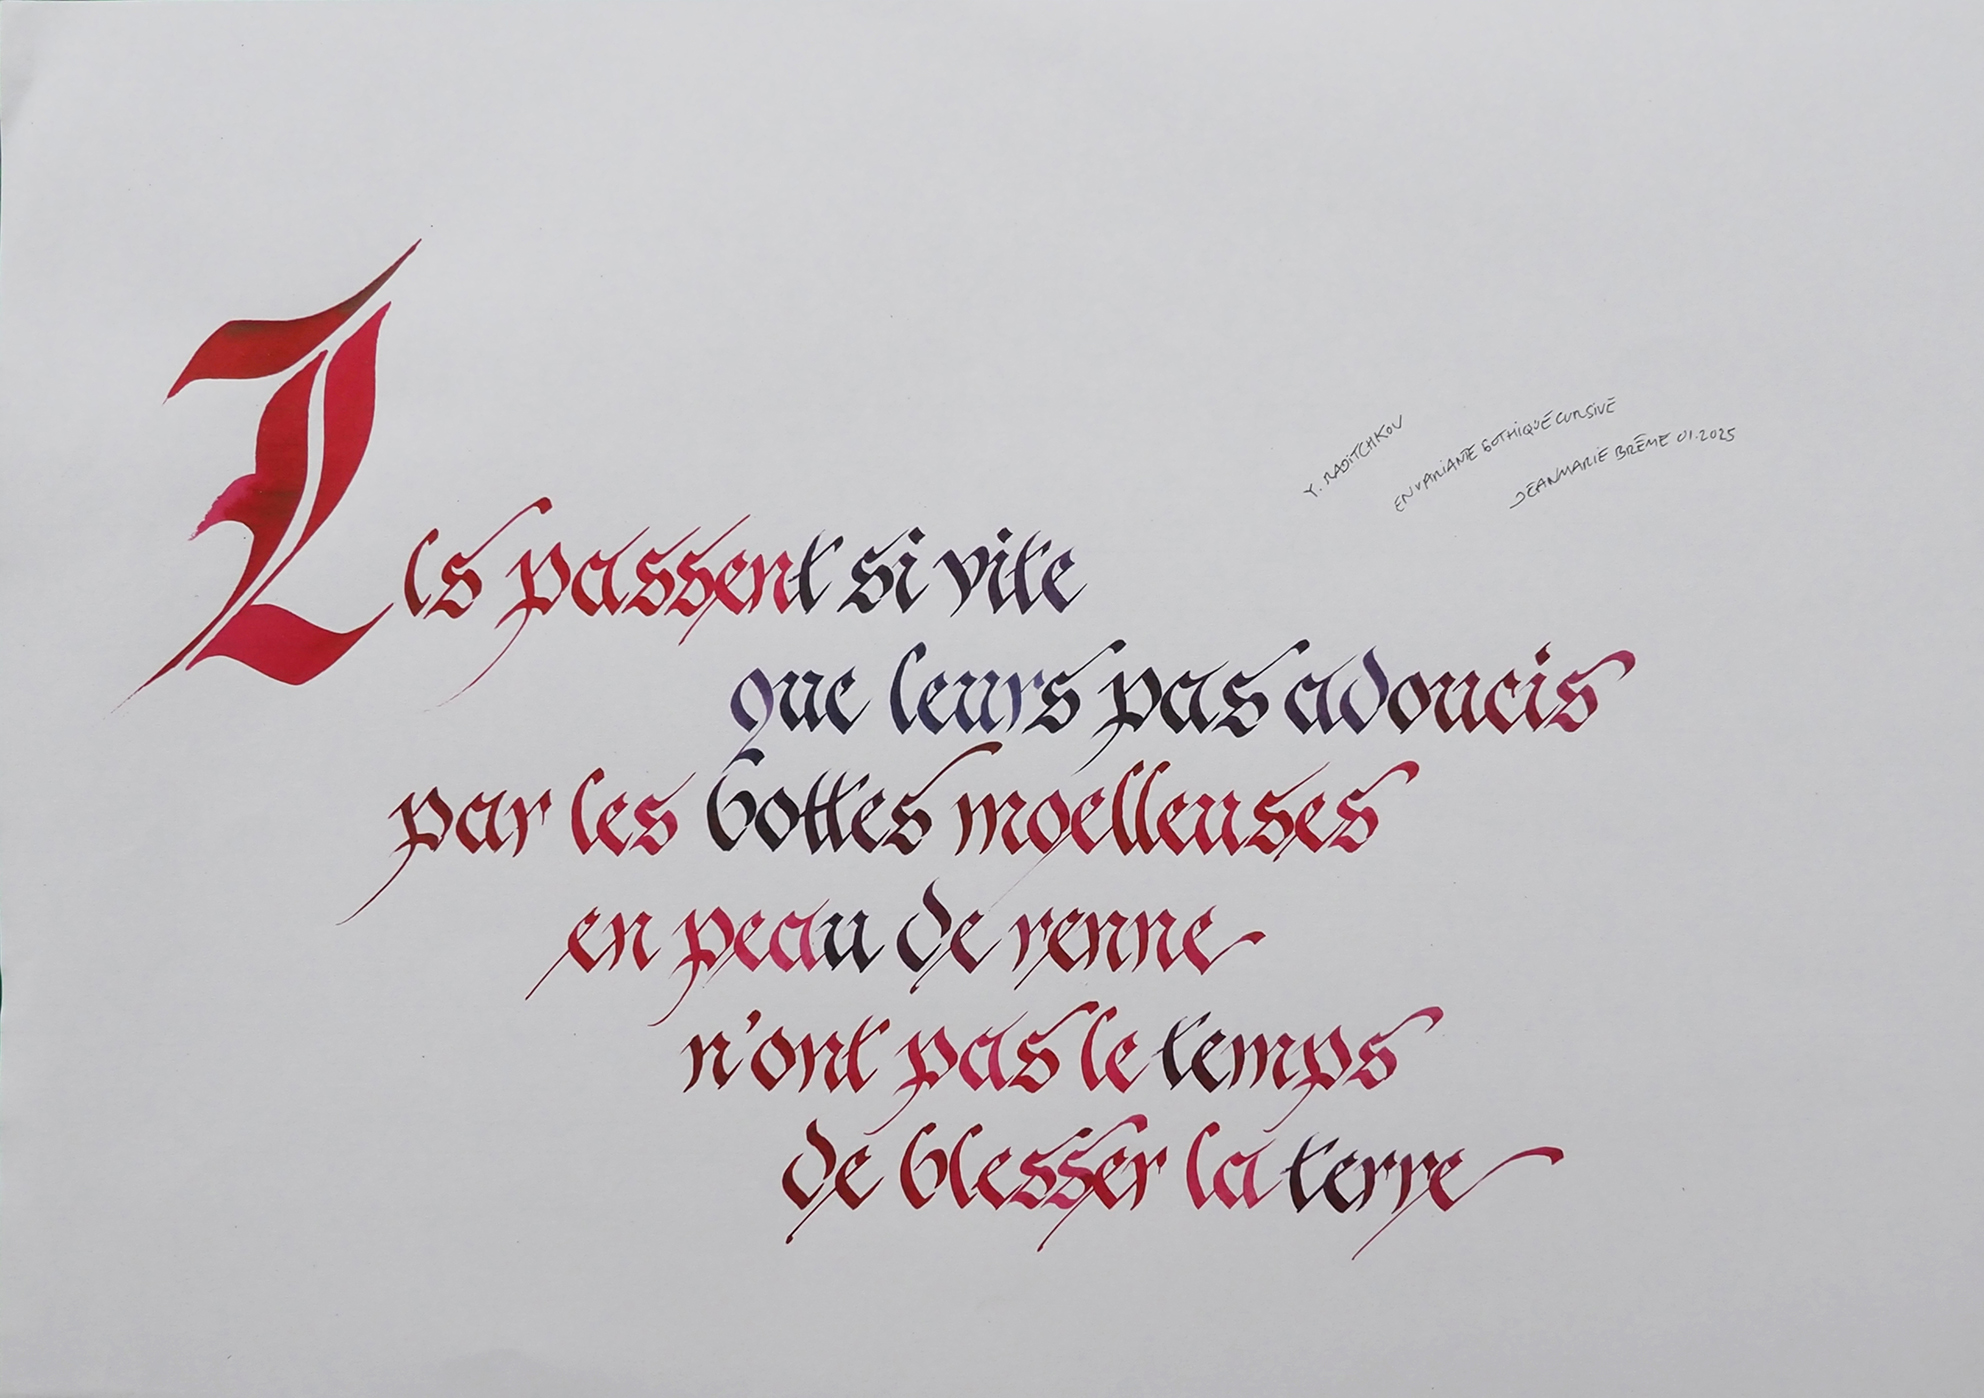 Y. RADITCHKOV
EN VARIANTE GOTHIQUE CURSIVE
JEANMARIE BRÊME 01.2025
Ils passent si vite
que leurs pas adoucis
par les bottes moelleuses
en peau de renne
n'ont pas le temps
de blesser la terre